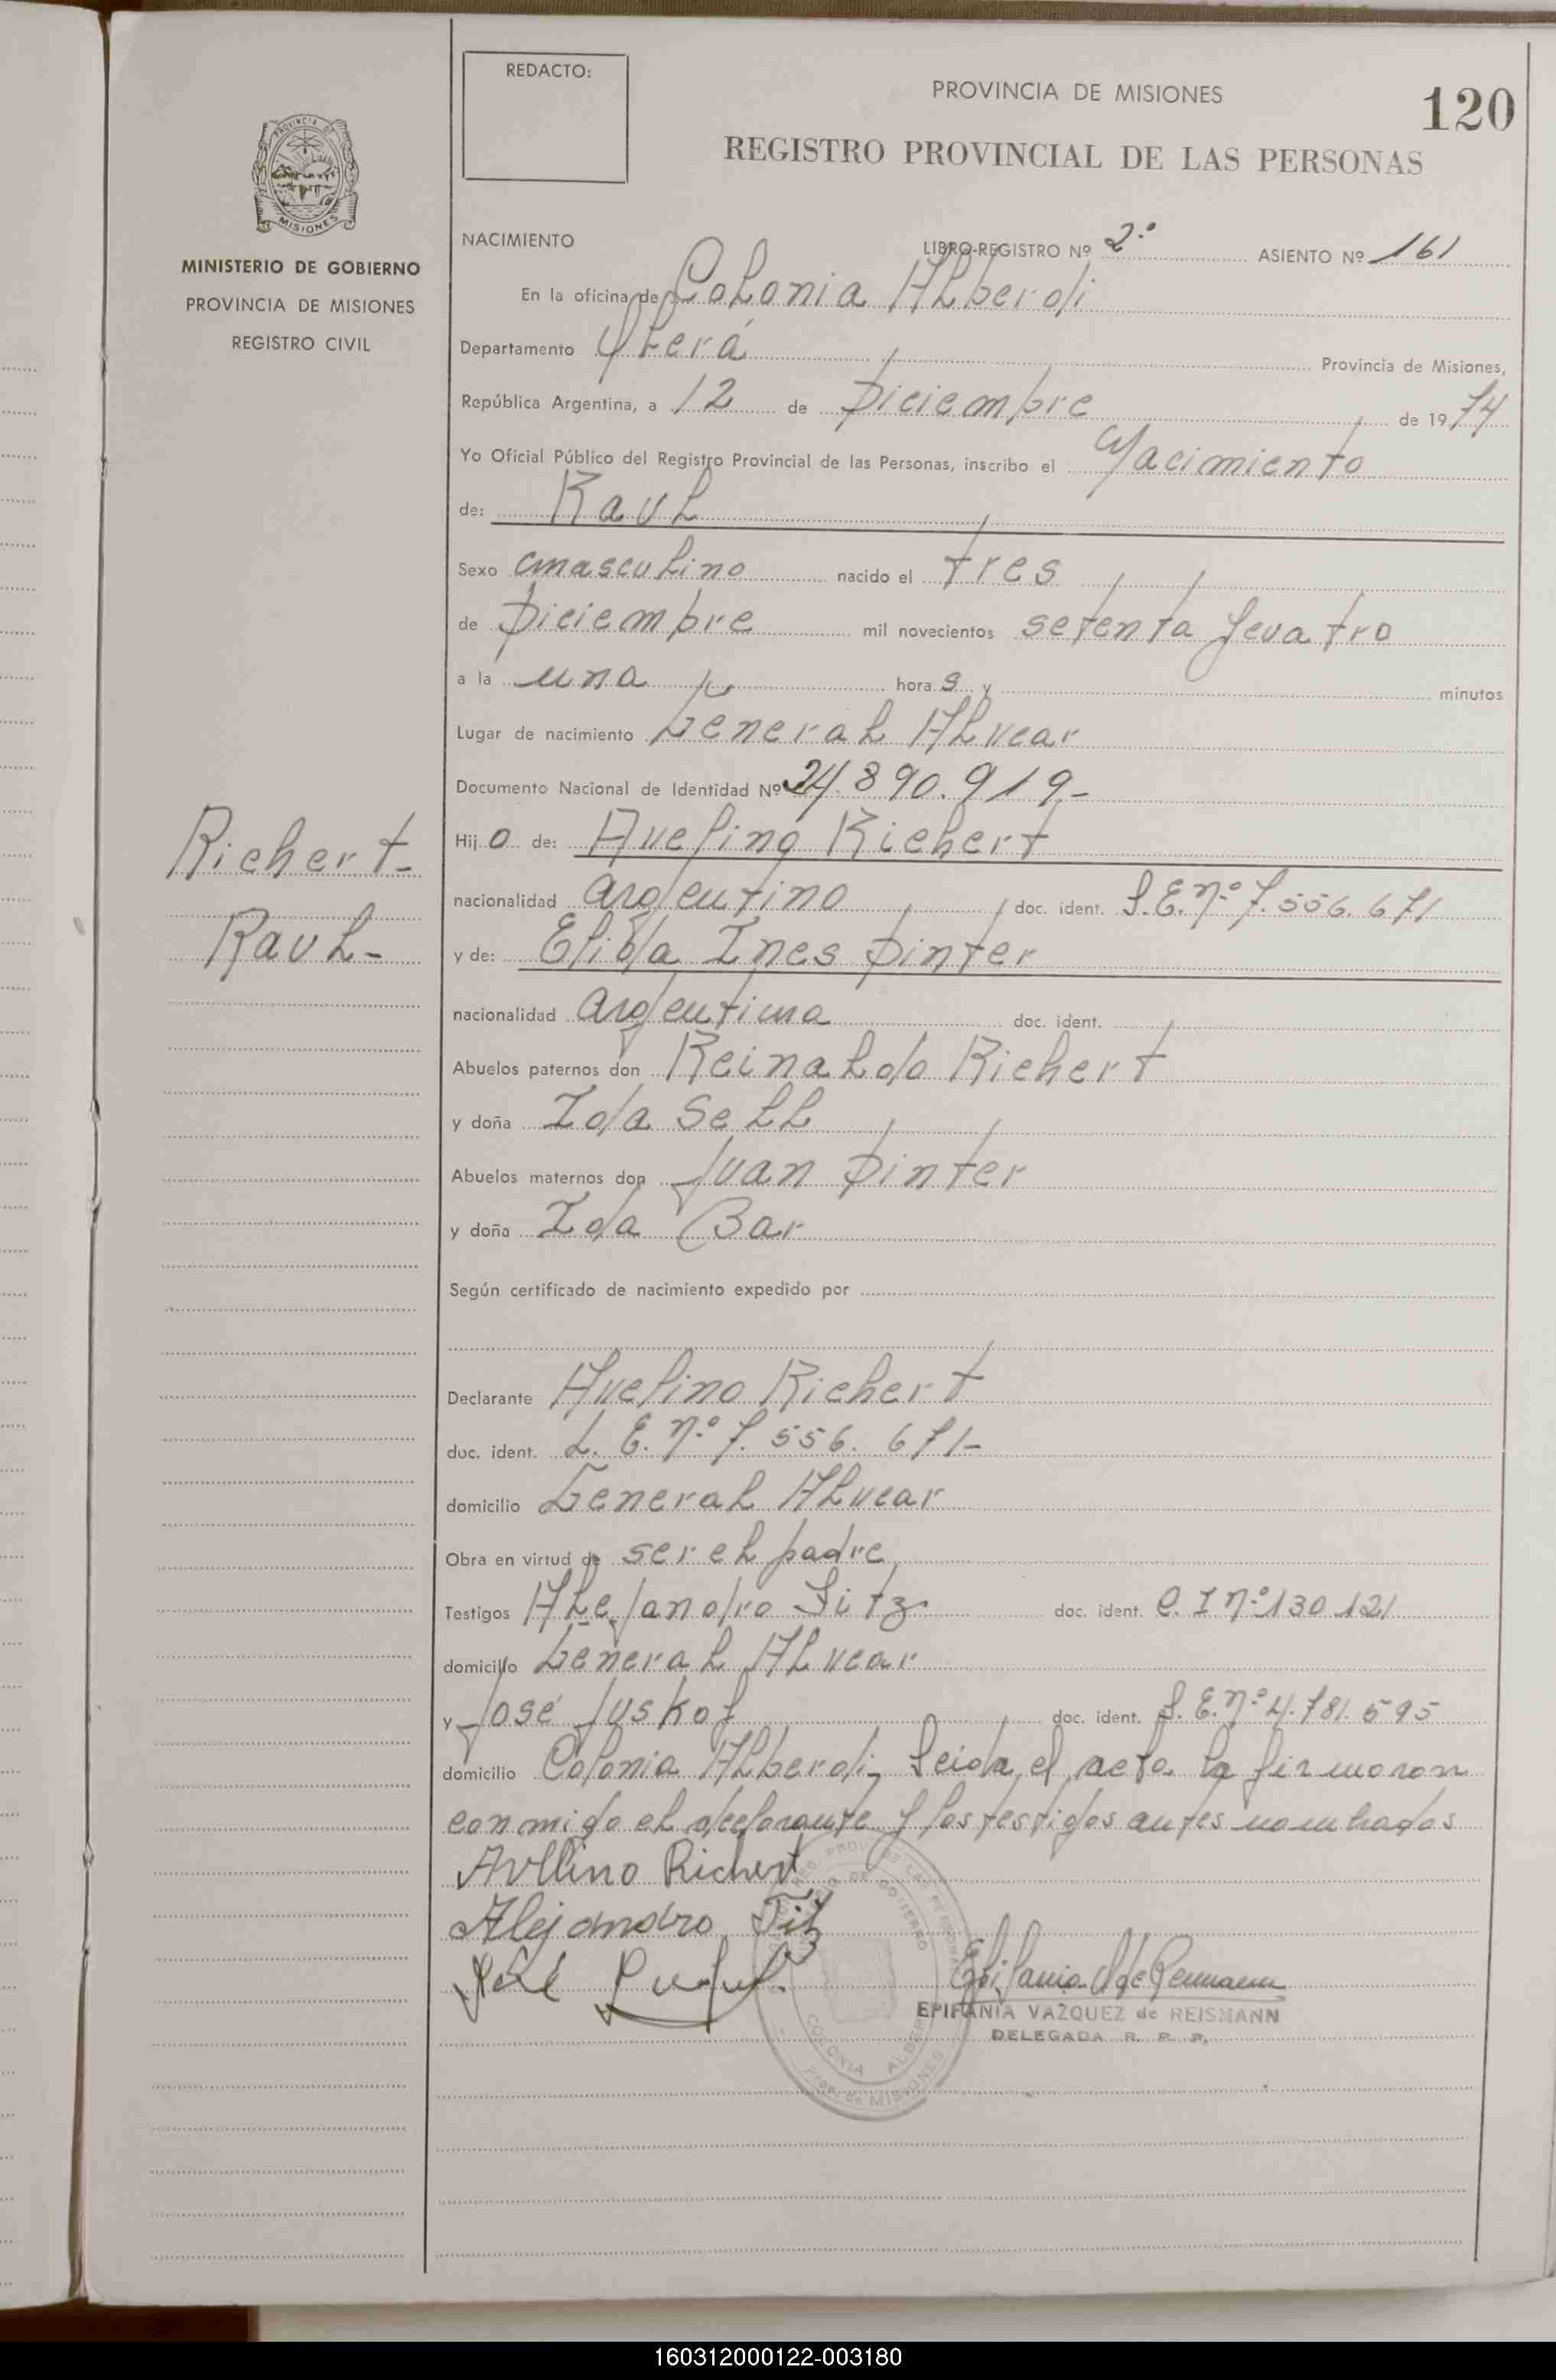 REDACTO:
PROVINCIA DE MISIONES
120
REGISTRO PROVINCIAL DE LAS PERSONAS
PROVINCIA DE
MISIONES
MINISTERIO DE GOBIERNO
PROVINCIA DE MISIONES
REGISTRO CIVIL
Richert-
Raul-
NACIMIENTO LIBRO-REGISTRO Nº 2º ASIENTO Nº 161
En la oficina de Colonia Alberdi
Departamento Oberá Provincia de Misiones,
República Argentina, a 12 de Diciembre de 1974
Yo Oficial Público del Registro Provincial de las Personas, inscribo el Nacimiento
de: Raul
Sexo masculino nacido el tres
de Diciembre mil novecientos setenta y cuatro
a la una hora s y minutos
Lugar de nacimiento General Alvear
Documento Nacional de Identidad Nº 24.890.919-
Hijo de: Avelino Richert
nacionalidad argentino doc. ident. L.E. nº 7.556.671
y de: Ines Dinter
nacionalidad argentina doc. ident.
Abuelos paternos don Reinaldo Richert
y doña Ida Sell
Abuelos maternos don Juan Dinter
y doña Ida Bar
Según certificado de nacimiento expedido por
Declarante Avelino Richert
doc. ident. L. E. nº 7.556.671-
domicilio General Alvear
Obra en virtud de ser el padre
Testigos Alejandro doc. ident. C. I nº 130.121
domicilio General Alvear
y José doc. ident. L. E. nº 4.781.595
domicilio Colonia Alberdi- Leida el acta la firmaron
conmigo el declarante y los testigos antes nombrados
Avelino Richert
Alejandro
José
EPIFANIA VAZQUEZ de REISMANN
DELEGADA R. P. P.
COLONIA ALBERDI
MISIONES
160312000122-003180